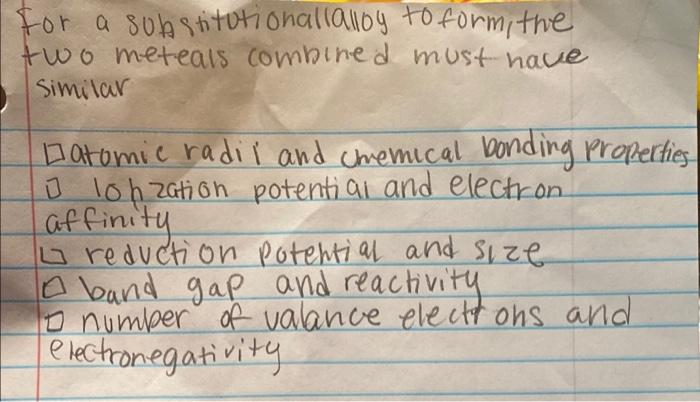 For a substitutional alloy to form, the
two meteals combined must have
similar
□ atomic radii and chemical bonding properties
□ Ionzation potential and electron
affinity
□ reduction potential and size
□ band gap and reactivity
□ number of valance electrons and
electronegativity